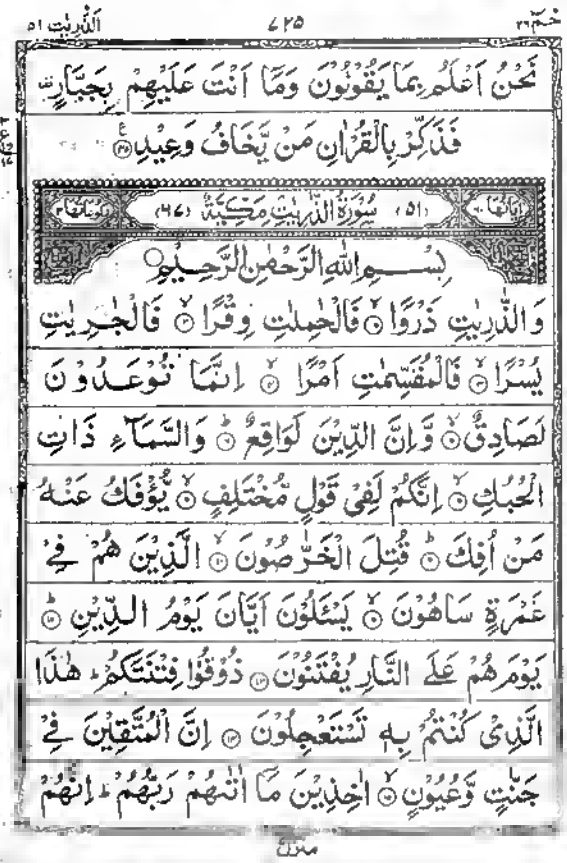 خٰمٓ ٢٦ ٤٢٥ الذّٰرِيٰت ٥١
نَحْنُ اَعْلَمُ بِمَا يَقُوْلُوْنَ وَمَآ اَنْتَ عَلَيْهِمْ بِجَبَّارٍ
فَذَكِّرْ بِالْقُرْاٰنِ مَنْ يَّخَافُ وَعِيْدِ ۝٤٥
اٰيَاتُهَا ٦٠ (٥١) سُوْرَةُ الذّٰرِيٰتِ مَكِّيَّةٌ (٦٧) رُكُوْعَاتُهَا ٣
بِسْمِ اللهِ الرَّحْمٰنِ الرَّحِيْمِ
وَالذّٰرِيٰتِ ذَرْوًا ۝١ فَالْحٰمِلٰتِ وِقْرًا ۝٢ فَالْجٰرِيٰتِ
يُسْرًا ۝٣ فَالْمُقَسِّمٰتِ اَمْرًا ۝٤ اِنَّمَا تُوْعَدُوْنَ
لَصَادِقٌ ۝٥ وَّاِنَّ الدِّيْنَ لَوَاقِعٌ ۝٦ وَالسَّمَآءِ ذَاتِ
الْحُبُكِ ۝٧ اِنَّكُمْ لَفِيْ قَوْلٍ مُّخْتَلِفٍ ۝٨ يُّؤْفَكُ عَنْهُ
مَنْ اُفِكَ ۝٩ قُتِلَ الْخَرّٰصُوْنَ ۝١٠ الَّذِيْنَ هُمْ فِيْ
غَمْرَةٍ سَاهُوْنَ ۝١١ يَسْـَٔلُوْنَ اَيَّانَ يَوْمُ الدِّيْنِ ۝١٢
يَوْمَ هُمْ عَلَى النَّارِ يُفْتَنُوْنَ ۝١٣ ذُوْقُوْا فِتْنَتَكُمْ ؕ هٰذَا
الَّذِيْ كُنْتُمْ بِهٖ تَسْتَعْجِلُوْنَ ۝١٤ اِنَّ الْمُتَّقِيْنَ فِيْ
جَنّٰتٍ وَّعُيُوْنٍ ۝١٥ اٰخِذِيْنَ مَآ اٰتٰىهُمْ رَبُّهُمْ ؕ اِنَّهُمْ